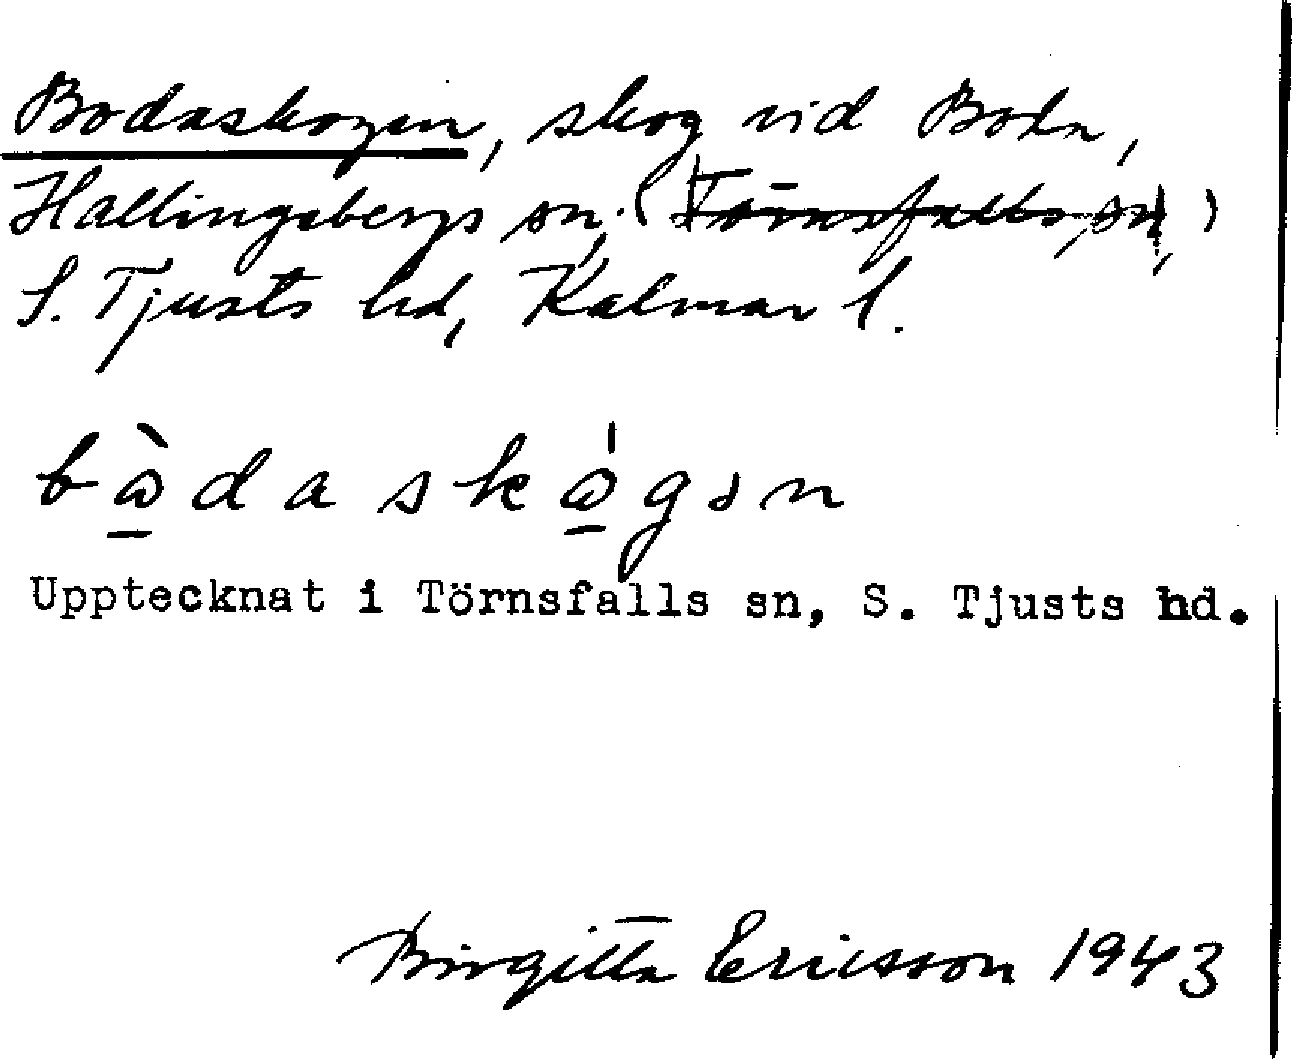 Bodaskogen, skog vid Boda,
Hallingebergs sn, (Törnsfalls sn,)
S. Tjusts hd, Kalmar l.
bὼ̲daskώ̲gən
Upptecknat i Törnsfalls sn, S. Tjusts hd.
Birgitta Ericsson 1943